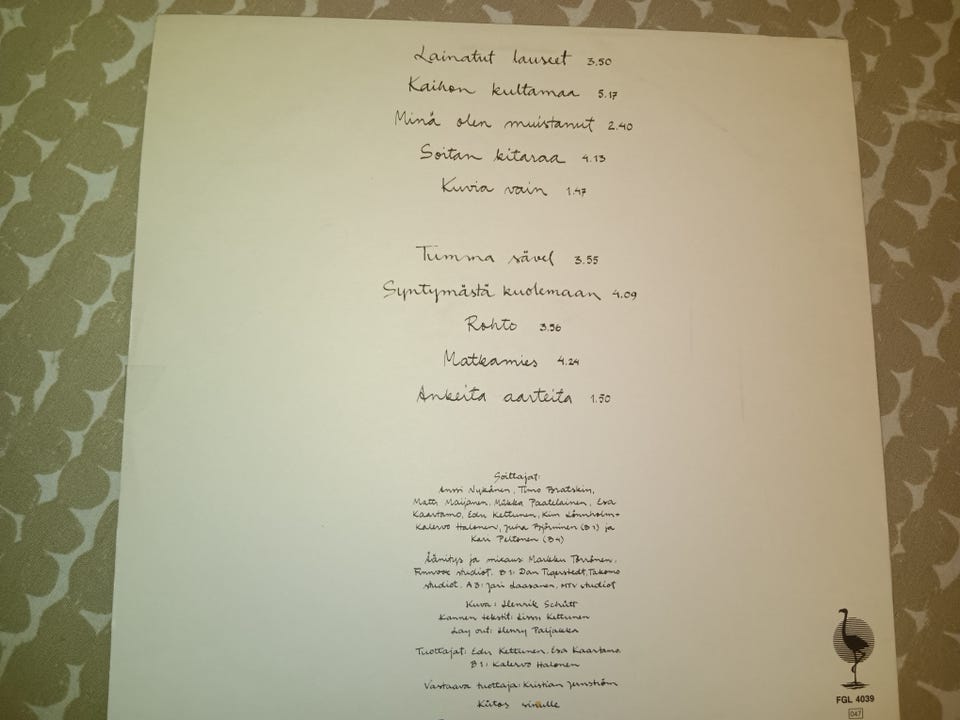 Lainatut lauseet 3.50
Kaihon kultamaa 5.17
Minä olen muistanut 2.40
Soitan kitaraa 4.13
Kuvia vain 1.47
Tumma sävel 3.55
Syntymästä kuolemaan 4.09
Rohto 3.56
Matkamies 4.24
Ankeita aarteita 1.50
Soittajat:
Anssi Nykänen, Timo Bratskin,
Matti Maijanen, Mikko Paatelainen, Esa
Kaartamo, Edu Kettunen, Kim Lönnholm +
Kalervo Halonen, Juha Björninen (B1) ja
Kari Peltonen (B4)
Äänitys ja miksaus: Markku Törrönen,
Finnvox studiot. B1: Dan Tigerstedt, Takomo
studiot. A3: Jari Laasanen, MTV studiot
Kuva: Henrik Schütt
Kannen tekstit: Lissu Kettunen
Lay out: Henry Paijakka
Tuottajat: Edu Kettunen, Esa Kaartamo
B1: Kalervo Halonen
Vastaava tuottaja: Kristian Jernström
Kiitos sinulle
FGL 4039
047